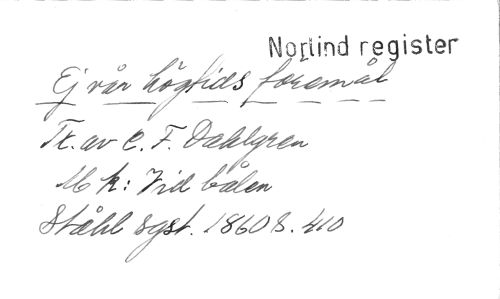 Norlind register
Ej vår högtids föremål
Tt. av C. F. Dahlgren
Mk: Vid bålen
Ståhl sgst. 1860 S. 410